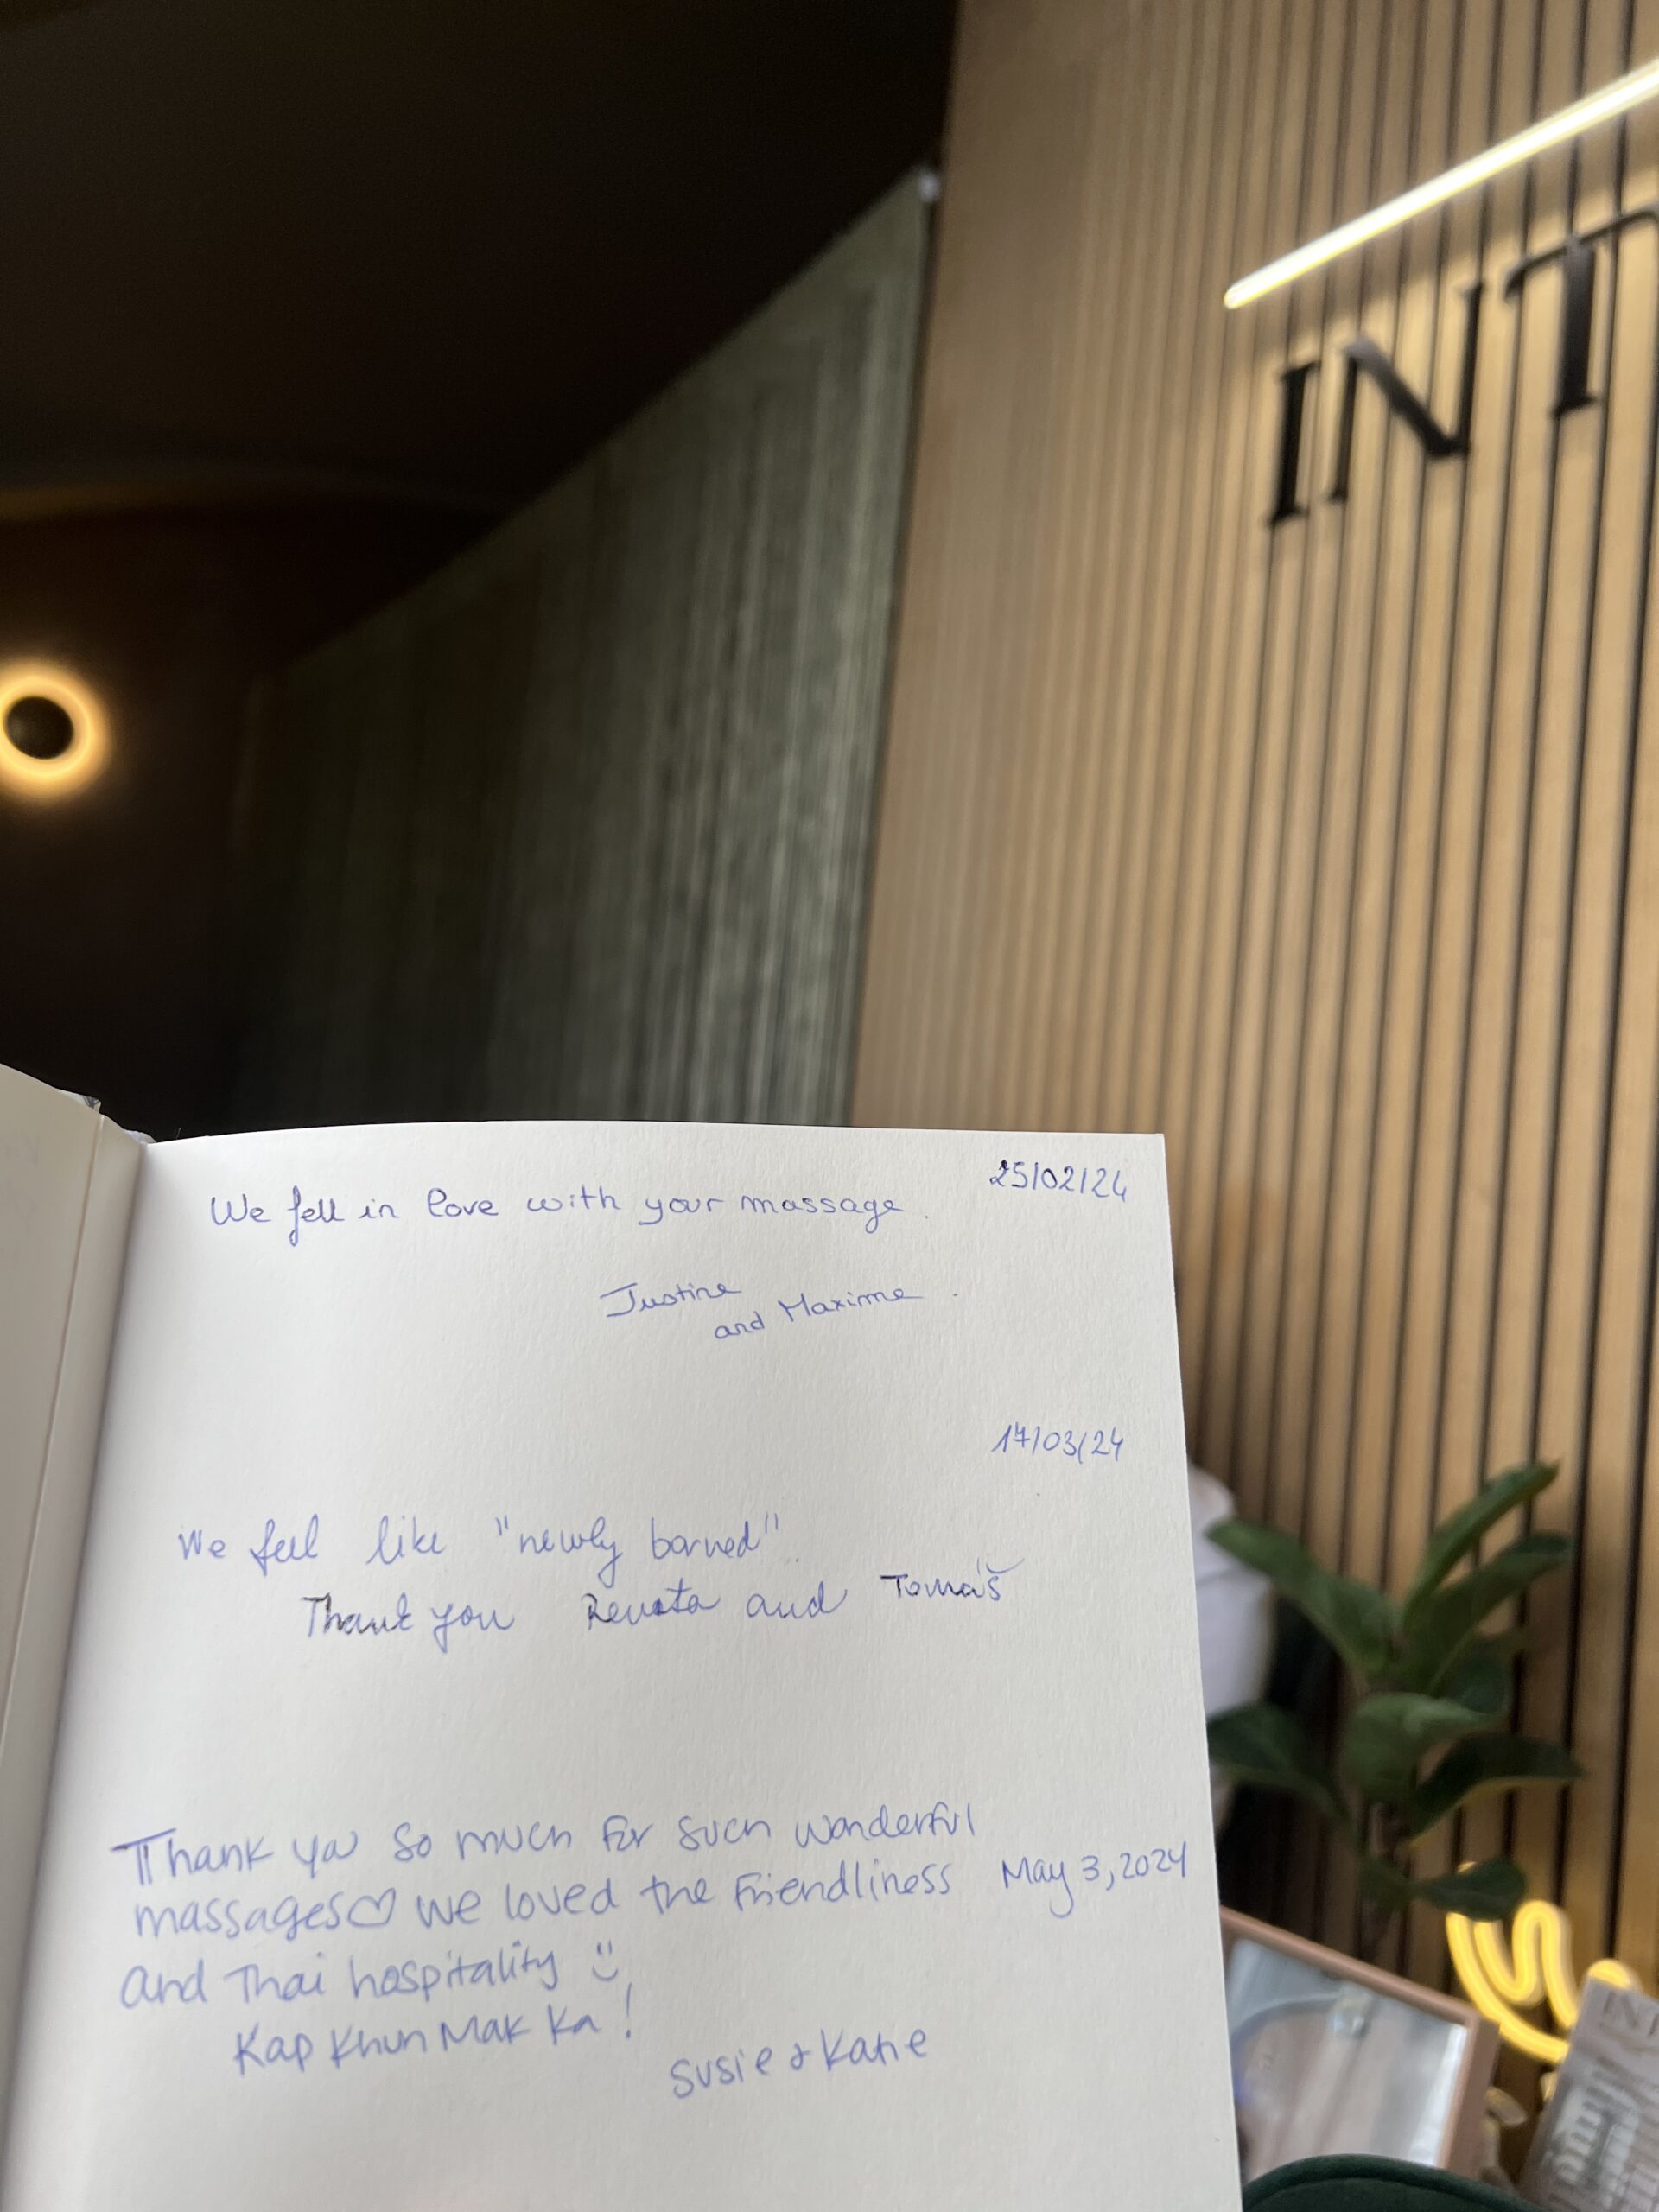 INT
25/02/24
We fell in love with your massage.
Justine
and Maxime.
17/03/24
We feel like "newly borned".
Thank you Renata and Tomáš
Thank you so much for such wonderful
massages♡ we loved the Friendliness May 3, 2024
and Thai hospitality :)
Kap Khun Mak Ka!
Susie & Katie